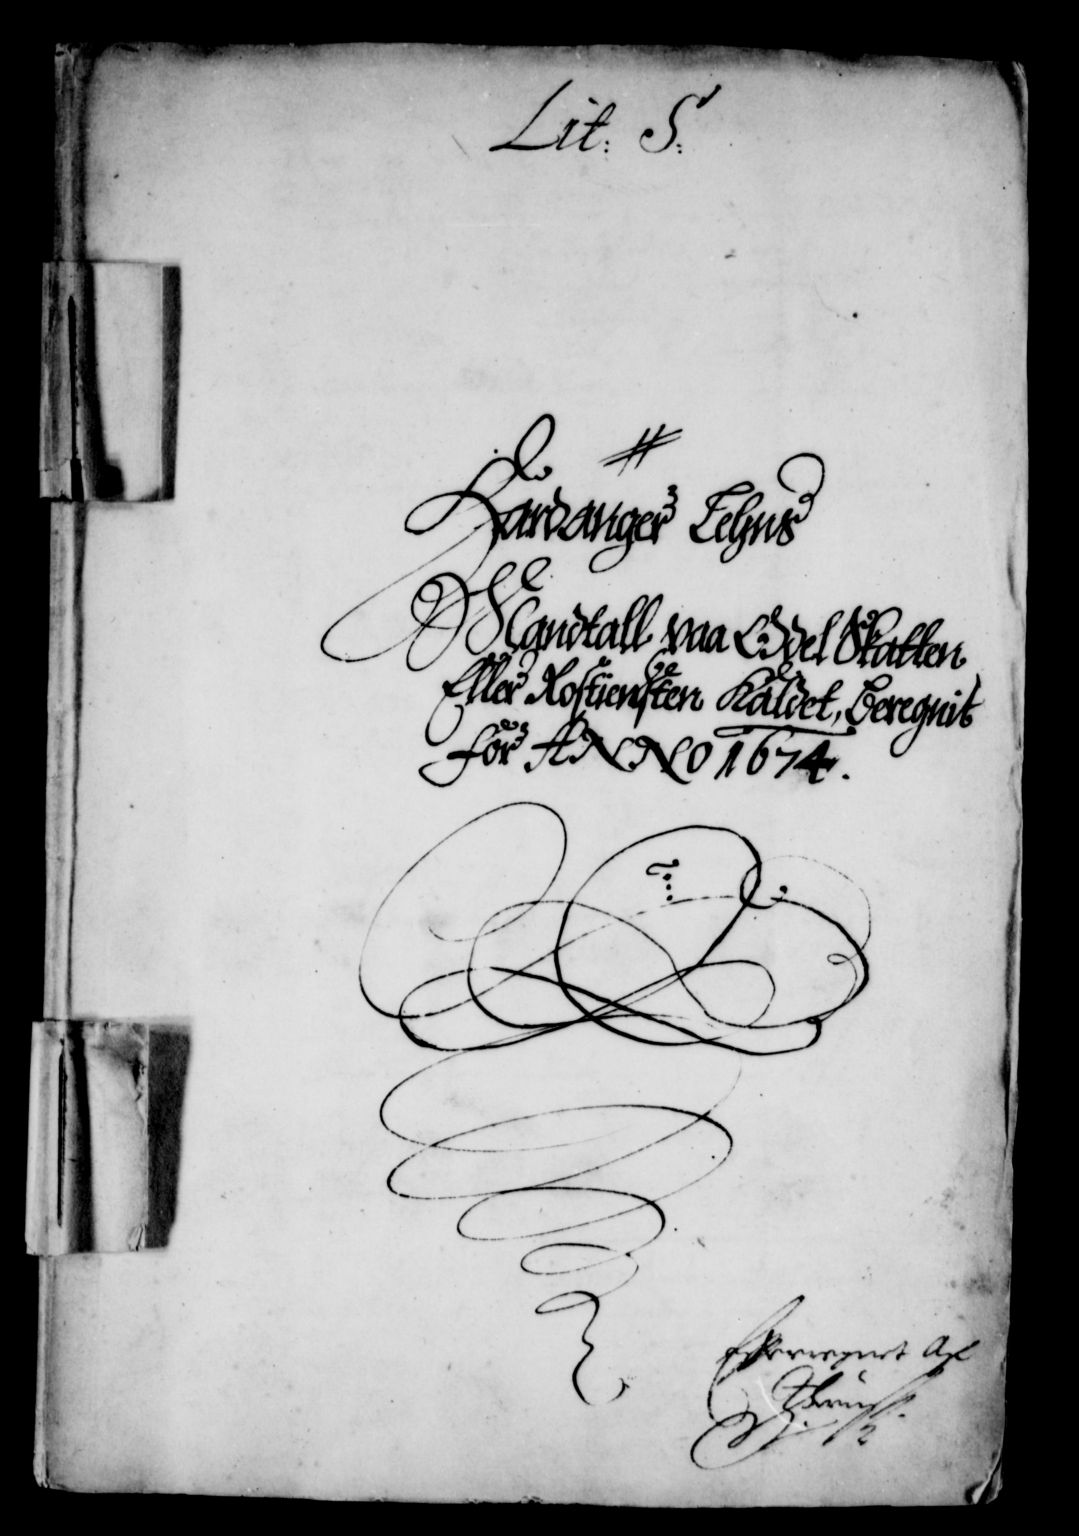 Lit: S:
Hardanger Lehns
Mandtall paa Oddel Skatten
Eller Rostiensten Kaldet, beregnit
for ANNO 1674.
Efterregnet Af